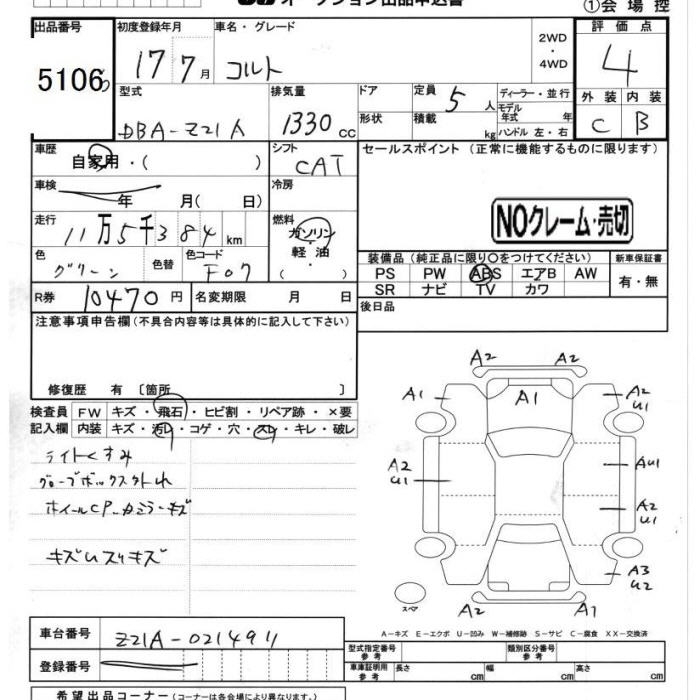 オークション出品申込書
①会場控
出品番号 初度登録年月 車名・グレード 2WD ・ 4WD 評価点
5106
17 7月 コルト 4
型式 排気量 ドア 定員 ディーラー・並行 外装 内装
DBA-Z21A 1330 cc 形状 5人 モデル年式 年 C B
積載 kg ハンドル 左・右
車歴 シフト セールスポイント(正常に機能するものに限ります)
自家用・( ) CAT
車検 冷房
年 月( 日)
NOクレーム・売切
走行 燃料
11万5千384km ガソリン・軽油・( )
色 色替 色コード 装備品(純正品に限り○をつけてください) 新車保証書
グリーン F07 PS PW ABS エアB AW 有・無
SR ナビ TV カワ
R券 10470円 名変期限 月 日 後日品
注意事項申告欄(不具合内容等は具体的に記入して下さい)
修復歴 有 〔箇所 〕
検査員 FW キズ・飛石・ヒビ割・リペア跡・×要
記入欄 内装 キズ・汚レ・コゲ・穴・スレ・キレ・破レ
ライトくすみ
グローブボックス外れ
ホイールCP.カミラーキズ
キズUスリキズ
A2 A2
A1 A1 A2
U1
A2 AU1
U1 A2
U1
A3
U2
スペア A2 A1
A-キズ E-エクボ U-凹み W-補修跡 S-サビ C-腐食 XX-交換済
車台番号 Z21A-0214911
登録番号
型式指定番号 参考 類別区分番号 参考
車庫証明用 参考 長さ cm 幅 cm 高さ cm
希望出品コーナー(コーナーは各会場により異なります。)